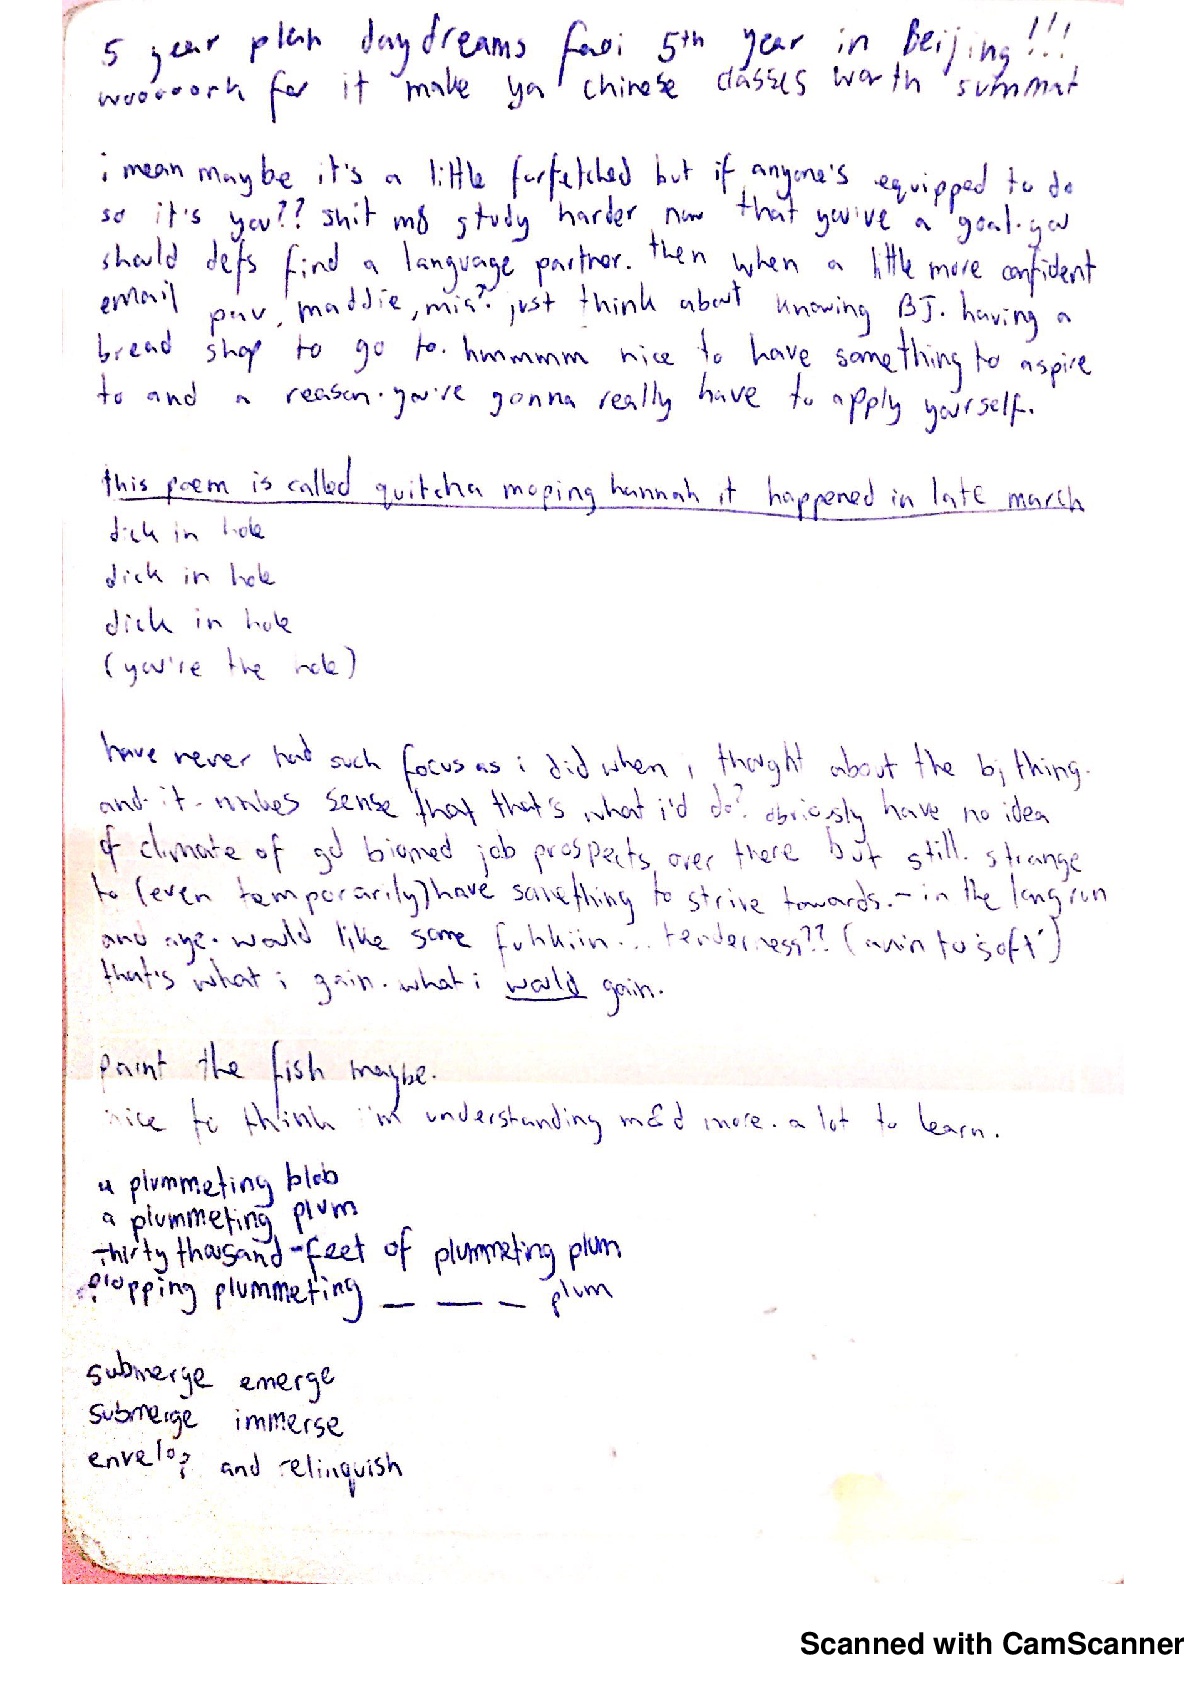 5 year plan daydreams 5th year in Beijing!!!
woooooork for it make ya chinese classes worth summat
i mean maybe it's a little farfetched but if anyone's equipped to do
so it's you?? shit m8 study harder now that you've a goal. you
should defs find a language partner. then when a little more confident
email pav, maddie, mia? just think about knowing BJ. having a
bread shop to go to. hmmmmm nice to have something to aspire
to and a reason. you're gonna really have to apply yourself.
this poem is called quitcha moping hannah it happened in late march
dick in hole
dick in hole
dick in hole
(you're the hole)
have never had such focus as i did when i thought about the bj thing.
and it makes sense that that's what i'd do? obviously have no idea
of climate of gd biomed job prospects over there but still. strange
to (even temporarily) have something to strive towards. - in the long run
and age. would like some fuhkiin... tenderness?? (akin to 'soft')
that's what i gain. what i would gain.
paint the fish maybe.
nice to think i'm understanding m&d more. a lot to learn.
a plummeting blob
a plummeting plum
thirty thousand-feet of plummeting plum
plopping plummeting _ _ _ plum
submerge emerge
submerge immerse
envelop and relinquish
Scanned with CamScanner